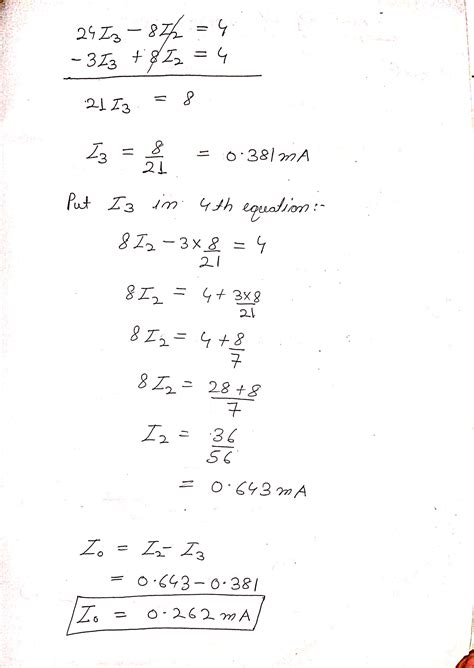 24I₃ - 8I₂ = 4
- 3I₃ + 8I₂ = 4
21I₃ = 8
I₃ = 8/21 = 0.381mA
Put I₃ in 4th equation:-
8I₂ - 3×8/21 = 4
8I₂ = 4+ 3×8/21
8I₂ = 4+8/7
8I₂ = 28+8/7
I₂ = 36/56
= 0.643mA
I₀ = I₂- I₃
= 0.643-0.381
I₀ = 0.262mA